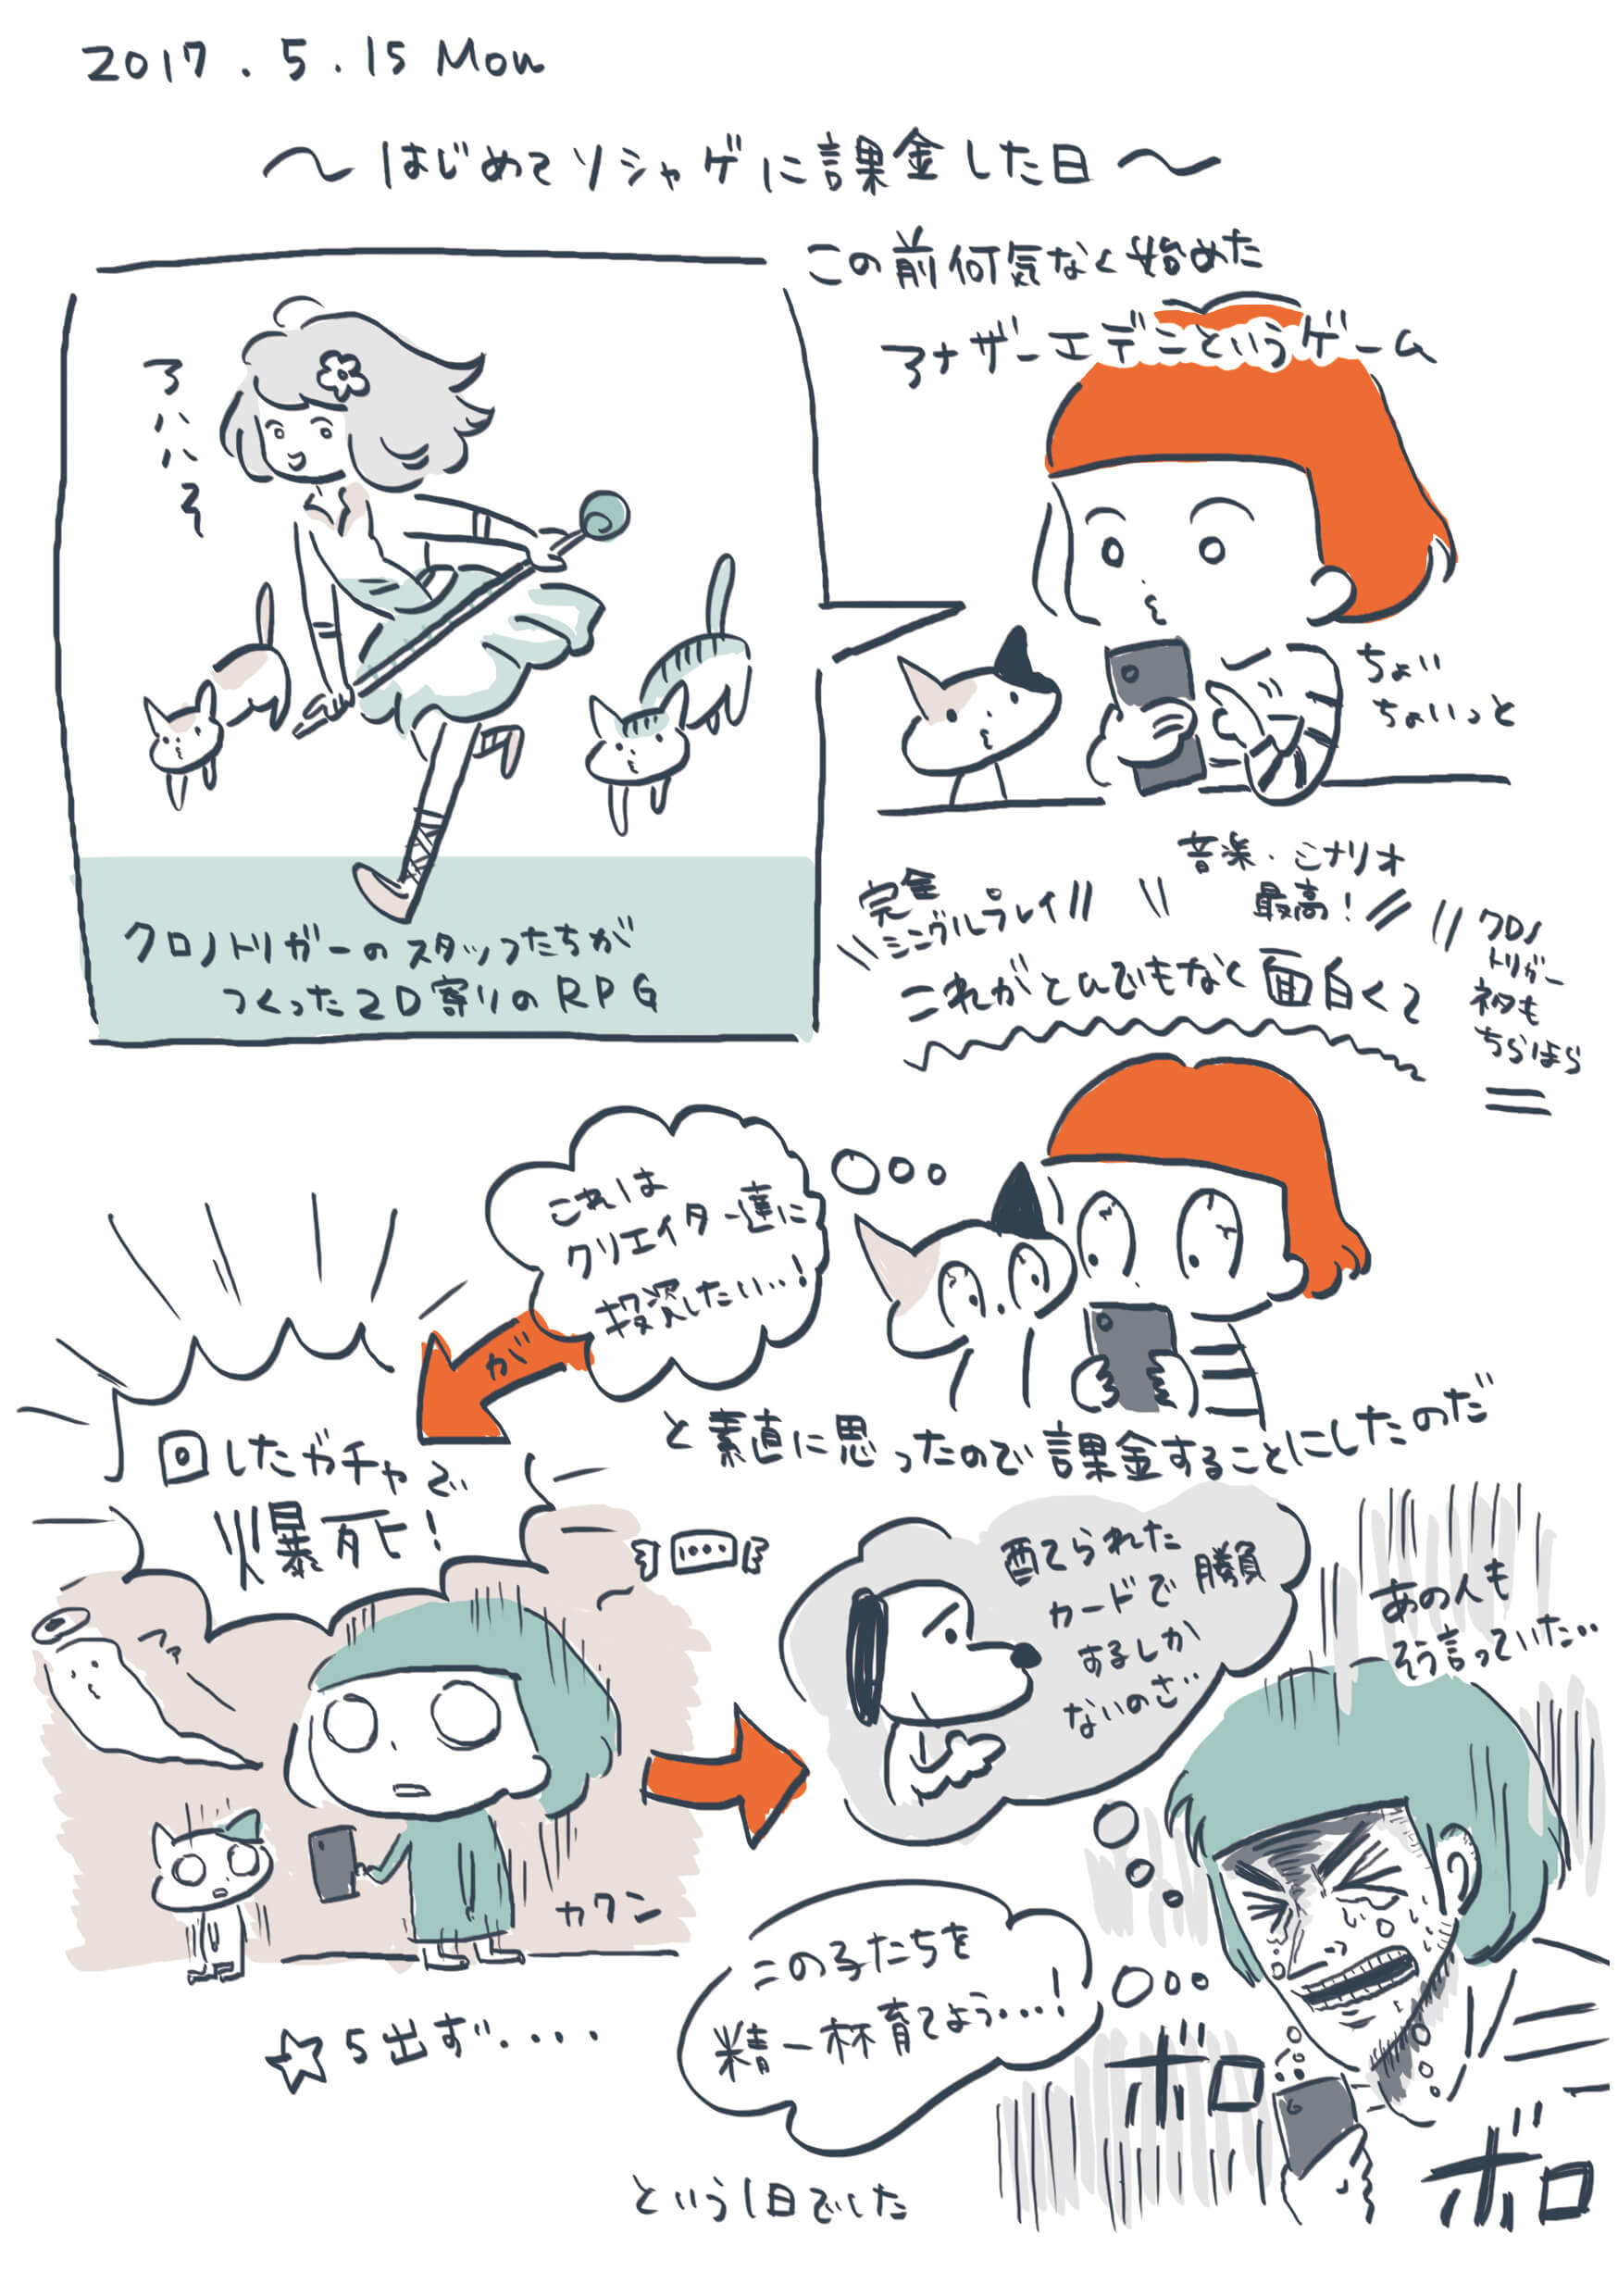 2017.5.15 Mon
〜はじめてソシャゲに課金した日〜
この前何気なく始めた
アナザーエデンというゲーム
アハハそ
クロノトリガーのスタッフたちが
つくった2D寄りのRPG
ちょい
ちょいっと
完全
シングルプレイ
音楽・シナリオ
最高!
クロノ
トリガー
ネタも
ちらほら
これがとんでもなく面白くて
これは
クリエイター達に
投資したい…!
と素直に思ったので課金することにしたのだ
が
回したガチャで
爆死!
ファ
カクン
☆5出ず....
配てられた
カードで勝負
するしか
ないのさ…
あの人も
そう言っていた…
この子たちを
精一杯育てよう…!
ボロ
ボロ
という1日でした